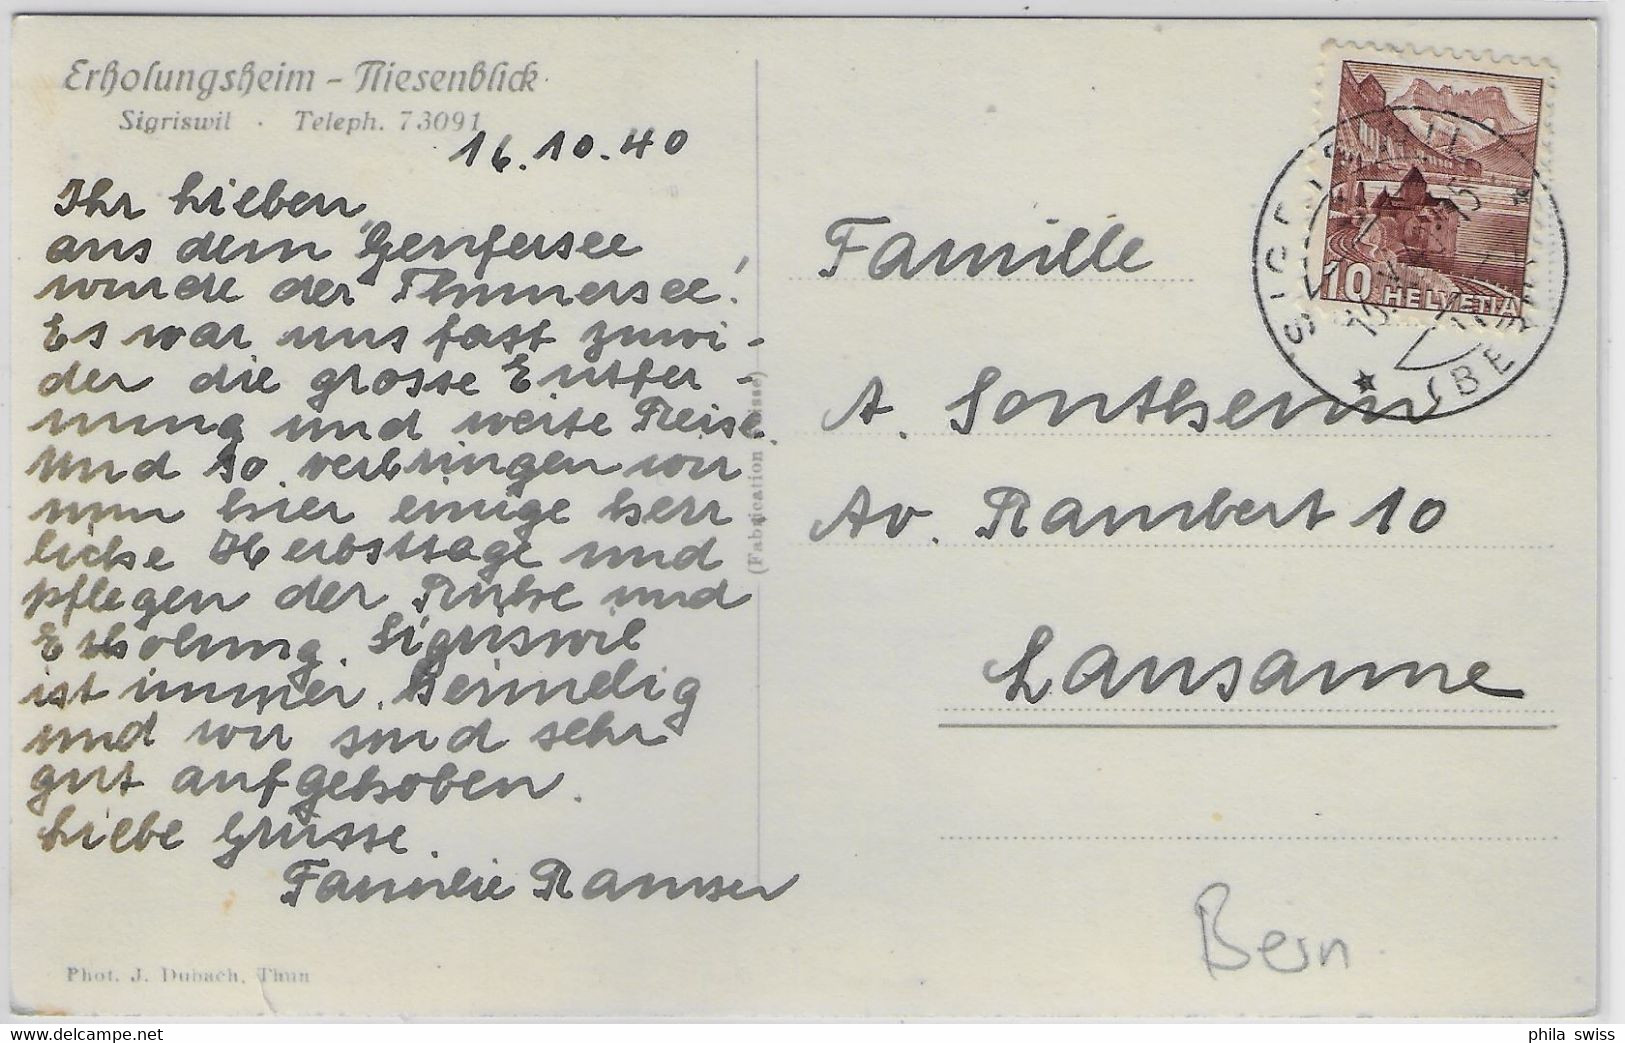 Erholungsheim - Niesenblick
Sigriswil · Teleph. 73091
16.10.40
Ihr Lieben
aus dem Genfersee
wurde der Thunersee!
Es war uns fast zuwi-
der die grosse Entfer-
nung und weite Reise.
Und so verbringen wir
nun hier einige herr
liche Herbsttage und
pflegen der Ruhe und
Erholung. Sigriswil
ist immer heimelig
und wir sind sehr
gut aufgehoben.
Liebe Grüsse.
Familie Ramser
Phot. J. Dubach, Thun
(Fabrication Suisse)
10 HELVETIA
SIGRISWIL
(BERN)
Famille
A. Sontheim
Av. Rambert 10
Lausanne
Bern
phila swiss